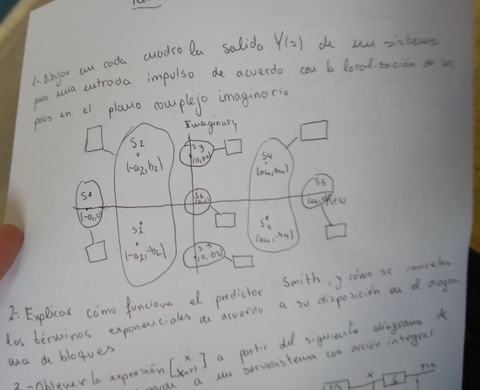 1.- Dibujar en cada cuadro la salida Y(s) de un sistema
para una entrada impulso de acuerdo con la localización de sus
polos en el plano complejo imaginario
Imaginary
S2
(-a2,b2)
S3
S4
S1
(-a,0)
S6
S5
S2*
(-a2,-b2)
S4*
2.- Explicar cómo funciona el predictor Smith, y cómo se cancelan
los términos exponenciales de acuerdo a su disposición en el diagra
ma de bloques
3.- Obtener la expresión a partir del siguiente diagrama de
a un servosistema con acción integral
x